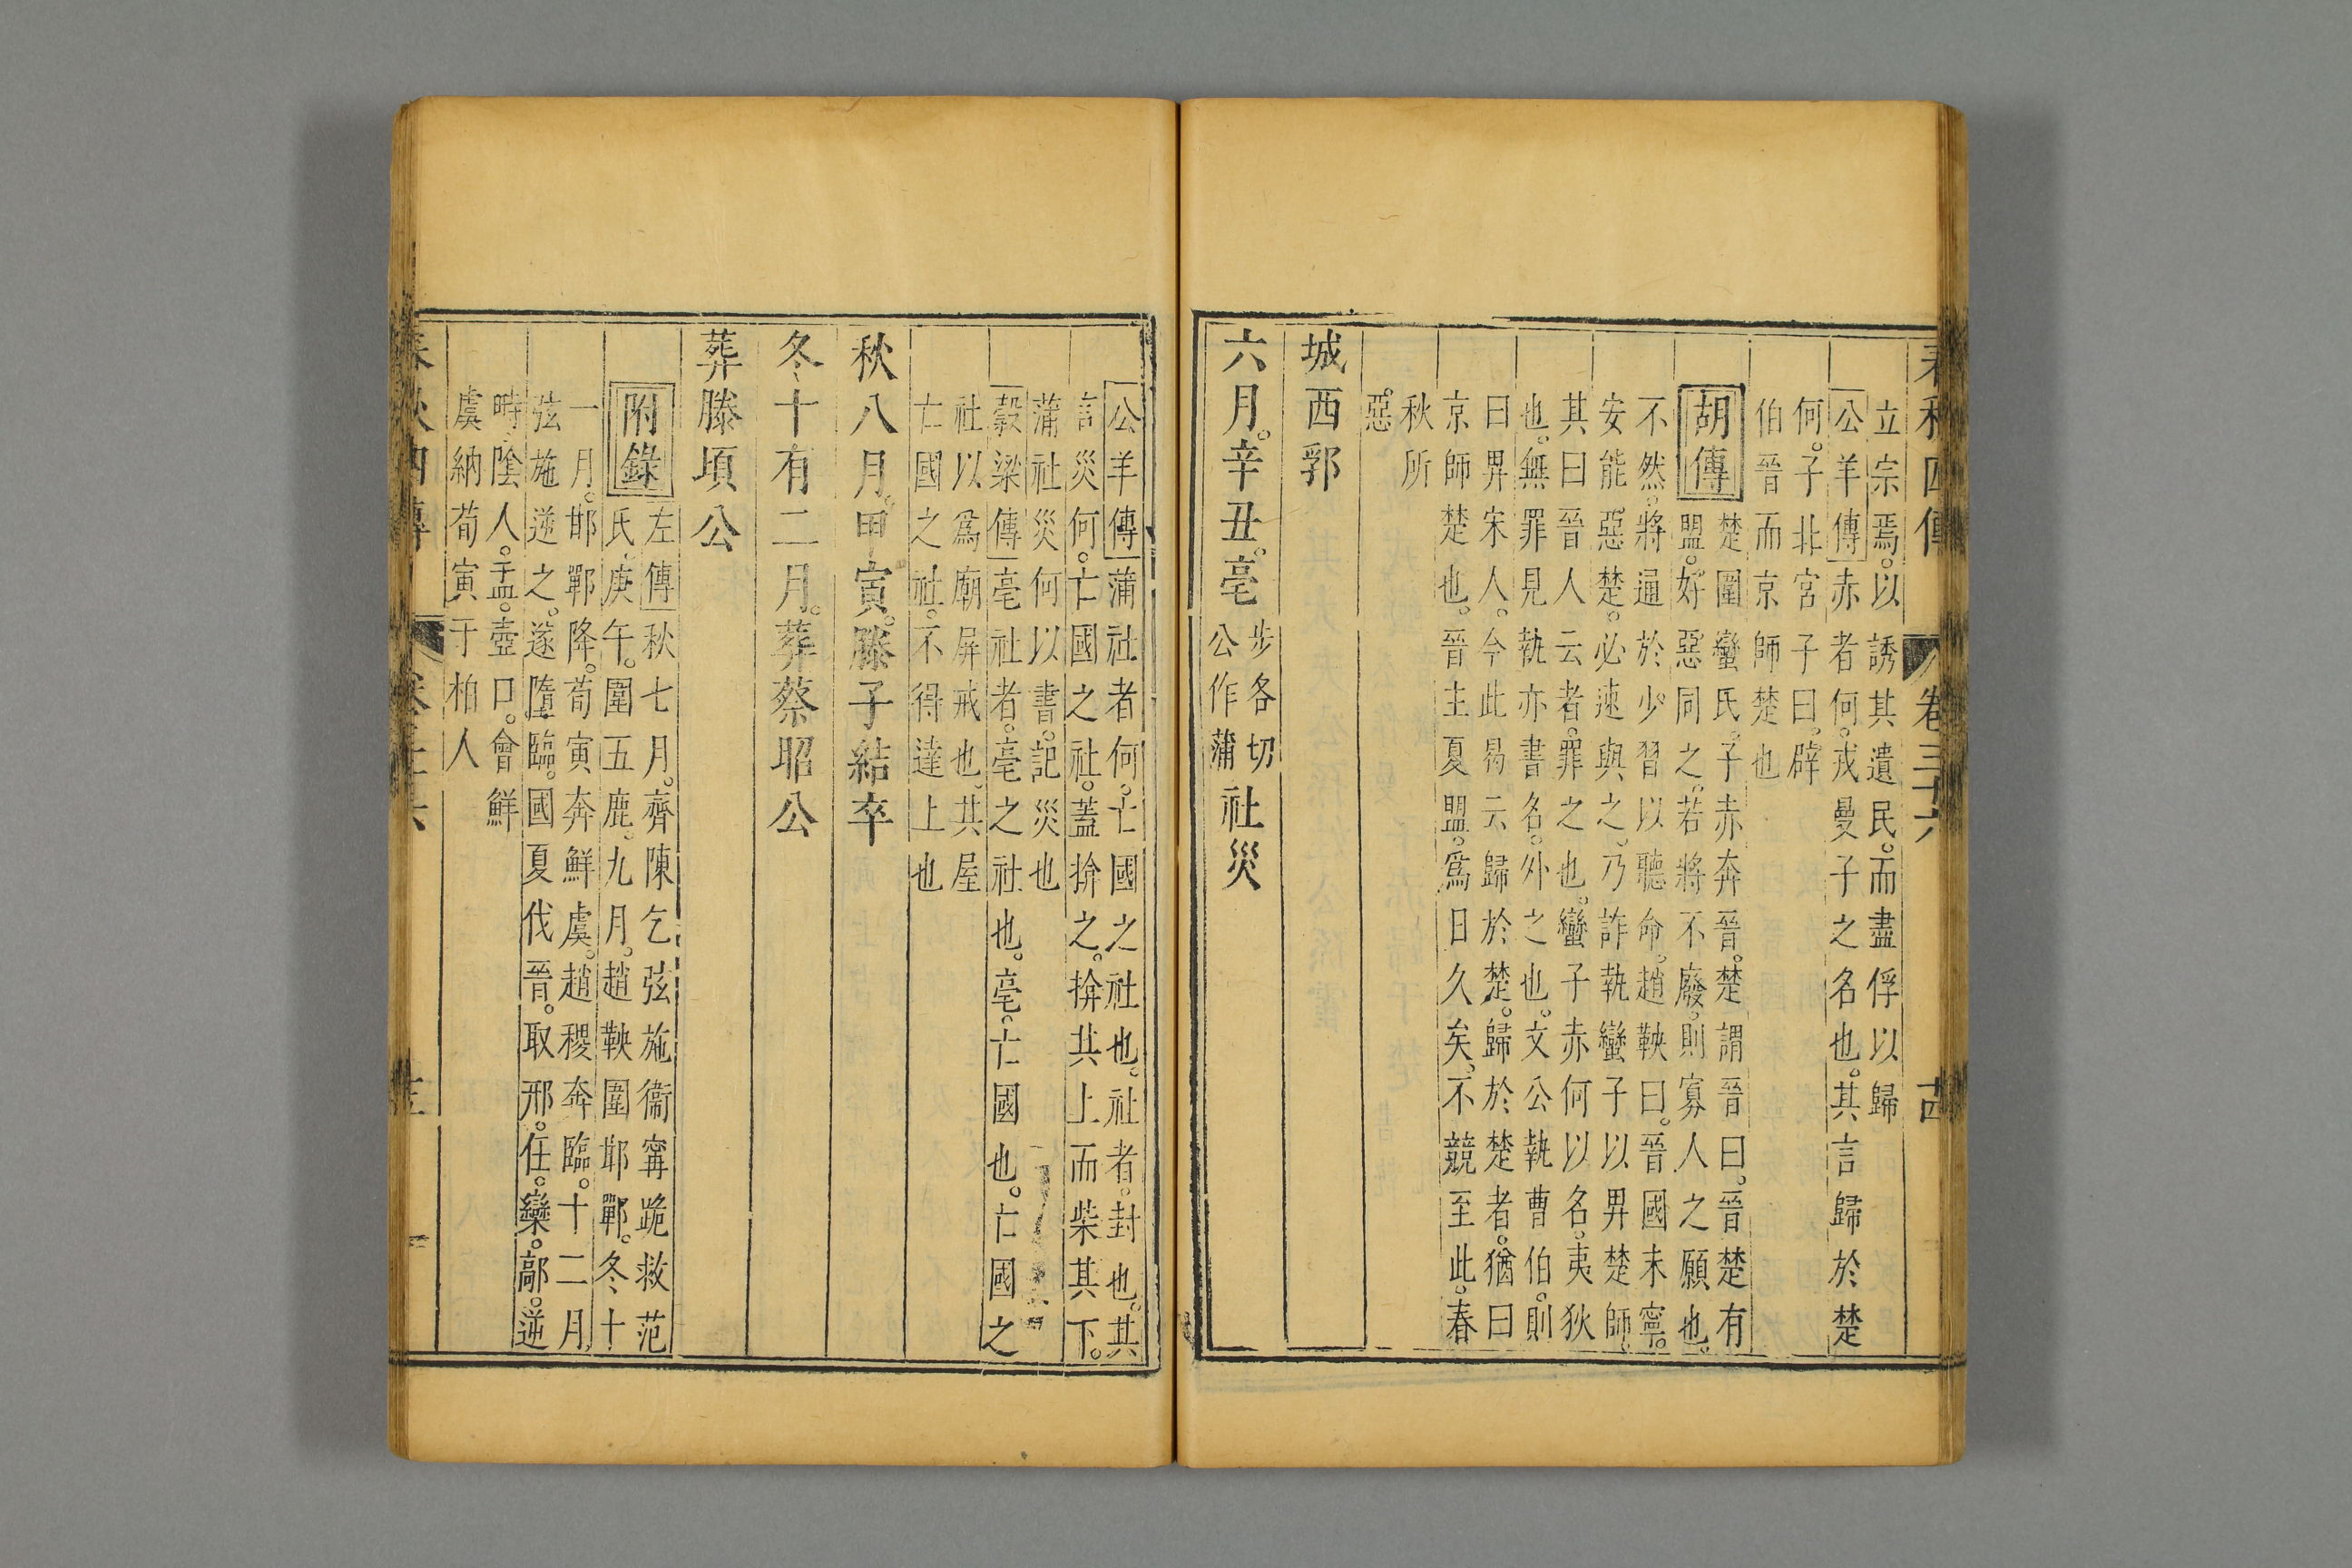 春秋四傳 卷三十六 古
立宗焉。以誘其遺民。而盡俘以歸
公羊傳赤者何。戎曼子之名也。其言歸於楚
何。子北宮子曰。辟
伯晉而京師楚也
胡傳楚圍蠻氏。子赤奔晉。楚謂晉曰。晉楚有
盟。好惡同之。若將不廢。則寡人之願也。
不然。將通於少習以聽命。趙鞅曰。晉國未寧。
安能惡楚。必速與之。乃詐執蠻子以畀楚師。
其曰晉人云者。罪之也。蠻子赤何以名。夷狄
也。無罪見執亦書名。外之也。文公執曹伯。則
曰畀宋人。今此曷云歸於楚。歸於楚者。猶曰
京師楚也。晉主夏盟。為日久矣。不競至此。春
秋所
惡。
城西郛
六月。辛丑。亳步各切公作蒲社災
公羊傳蒲社者何。亡國之社也。社者。封也。其
言災何。亡國之社。蓋揜之。揜其上而柴其下。
蒲社災何以書。記災也
穀梁傳亳社者。亳之社也。亳。亡國也。亡國之
社以爲廟屏戒也。其屋
亡國之社。不得達上也
秋八月。甲寅。滕子結卒
冬。十有二月。葬蔡昭公
葬滕頃公
附錄左傳秋七月。齊陳乞弦施衞甯跪救范
氏。庚午。圍五鹿。九月。趙鞅圍邯鄲。冬。十
一月。邯鄲降。荀寅奔鮮虞。趙稷奔臨。十二月。
弦施逆之。遂墮臨。國夏伐晉。取邢。任。欒。鄗。逆
畤。陰人。盂。壺口。會鮮
虞納荀寅于柏人
春秋四傳 卷三十六